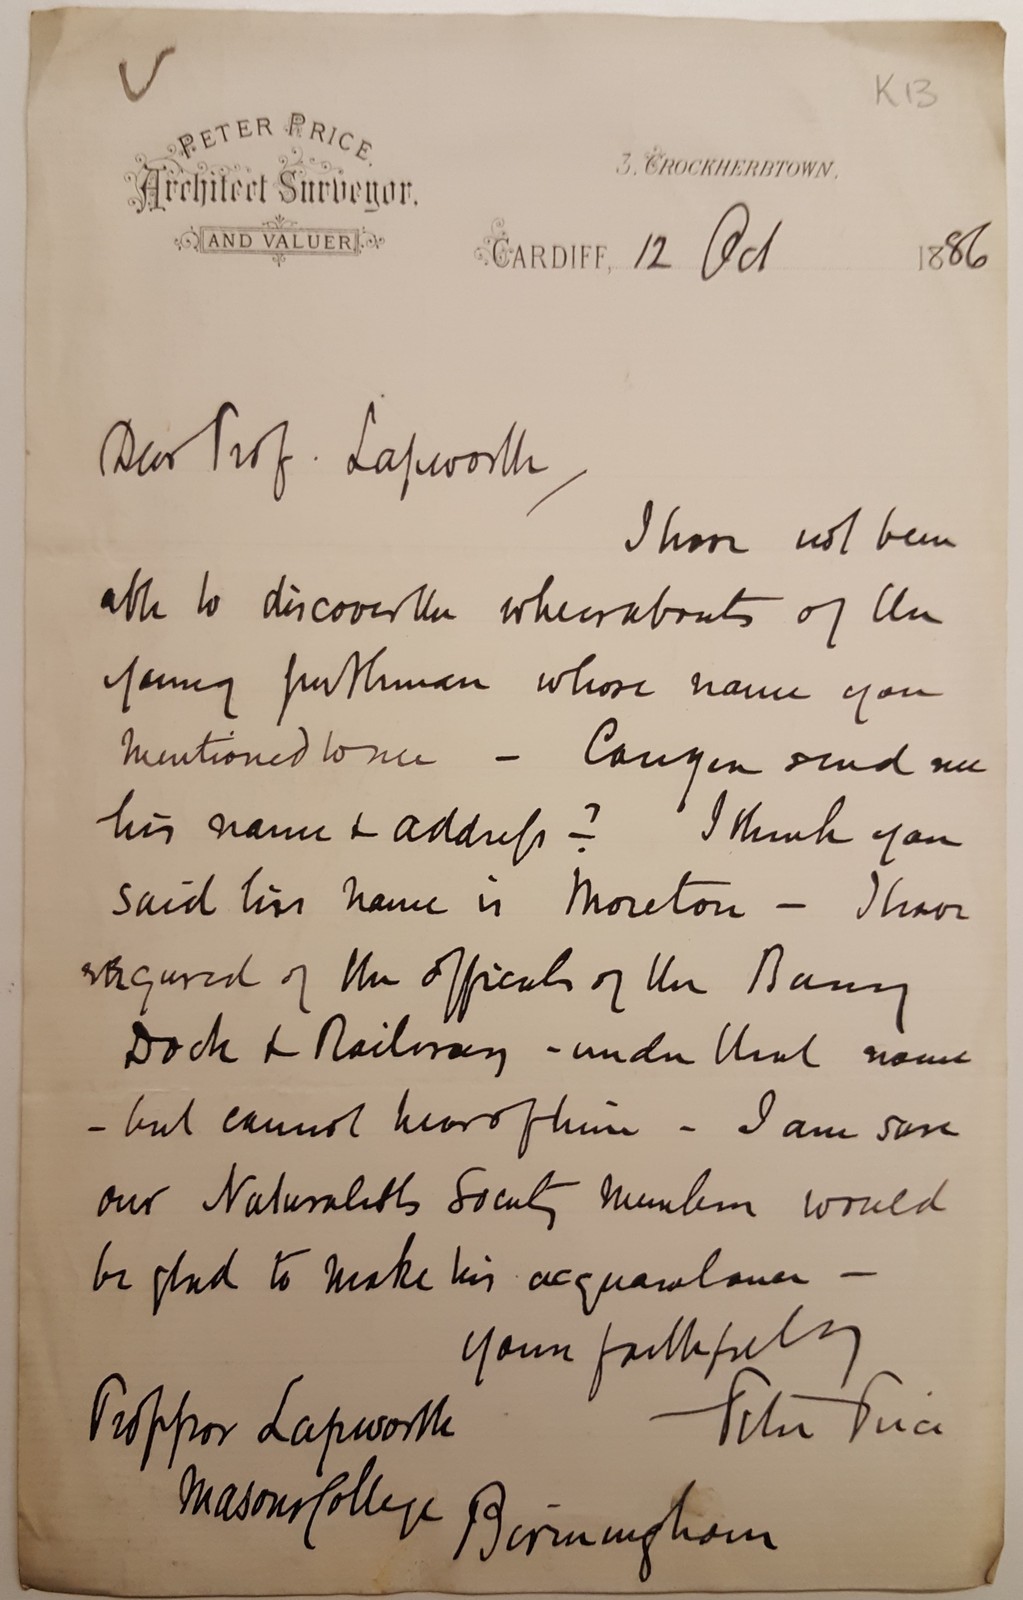 K13
PETER PRICE.
Architect Surveyor,
AND VALUER
3, CROCKHERBTOWN.
CARDIFF, 12 Oct 1886
Dear Prof. Lapworth,
I have not been
able to discover the wherabouts of the
young gentleman whose name you
mentioned to me - Can you send me
his name & address? I think you
said his name is Moreton - I have
of the officials of the Barry
Dock & Railway - under that name
- but cannot hear of him - I am sure
our Naturalists Society members would
be glad to make his acquaintance -
yours faithfully
Peter Price
Professor Lapworth
Masons College
Birmingham